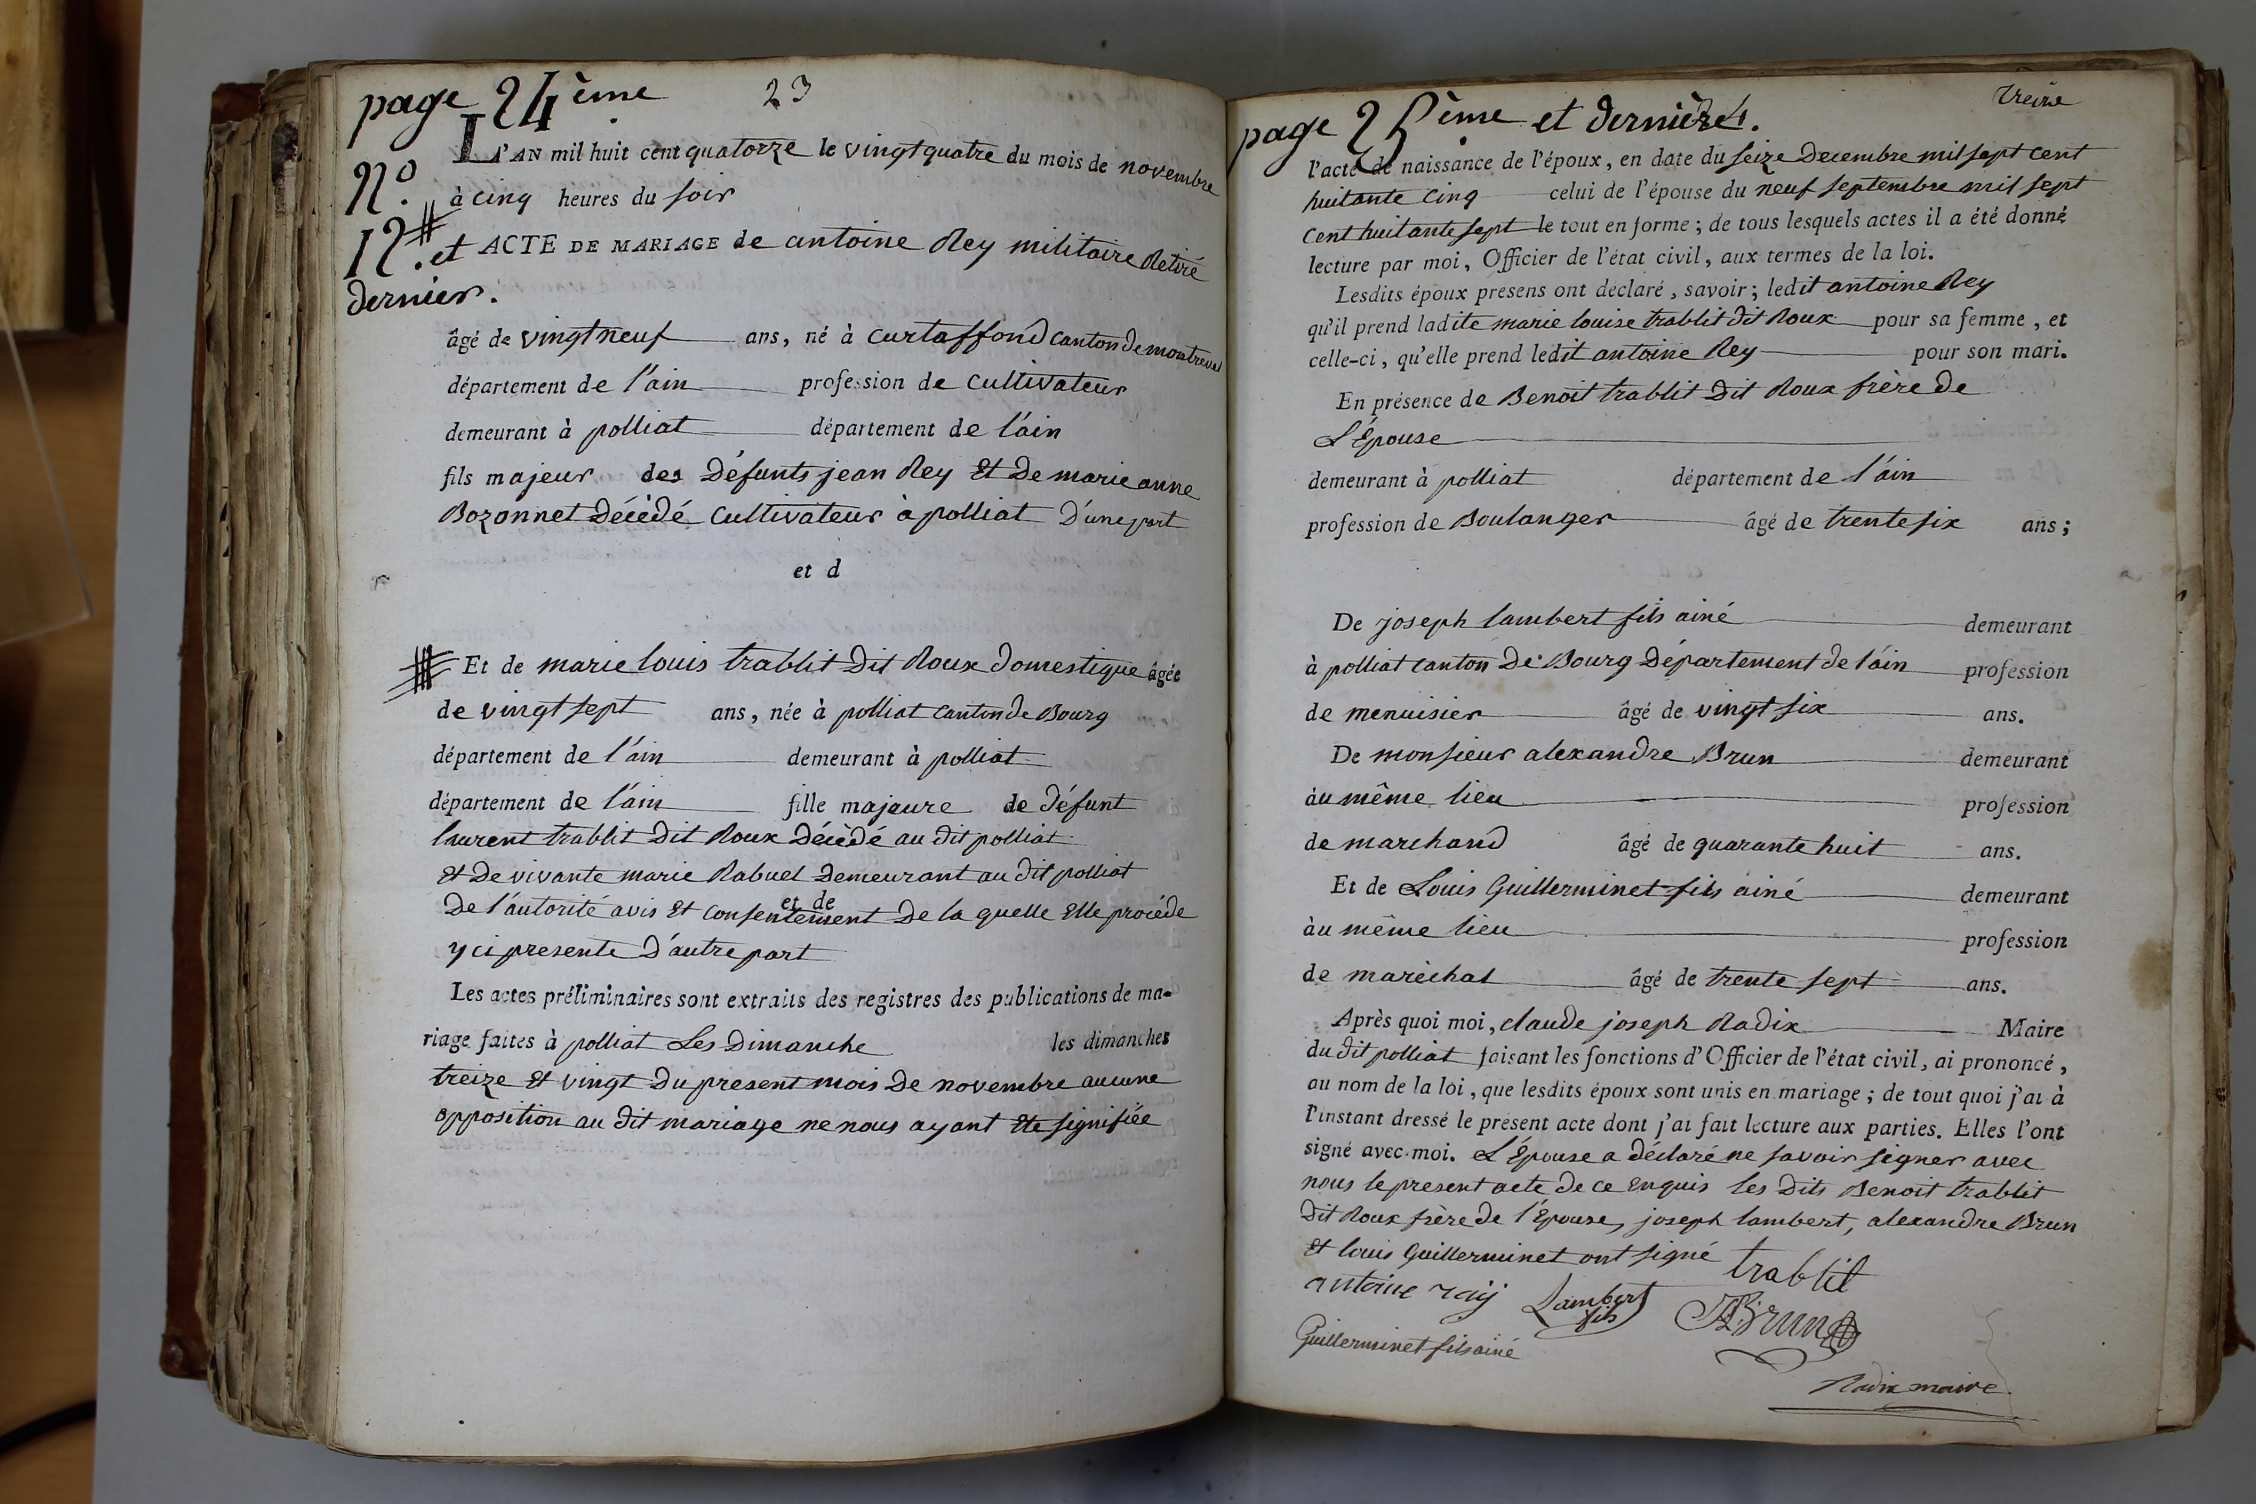 page 24ème 23
N.º L'AN mil huit cent quatorze le vingt quatre du mois de novembre
à cinq heures du soir
12.# et ACTE DE MARIAGE de antoine Rey militaire Retiré
dernier.
âgé de vingt neuf ans, né à curtaffond canton de montreval
département de l'ain profession de cultivateur
demeurant à polliat département de l'ain
fils majeur des Défunts jean Rey Et De marie anne
Bozonnet Décédé cultivateur à polliat D'une part
et d
# Et de marie louis trablit Dit Roux domestique âgée
de vingt sept ans, née à polliat canton de Bourg
département de l'ain demeurant à polliat
département de l'ain fille majeure de défunt
laurent trablit Dit Roux Décédé au dit polliat
Et De vivante marie Rabuel Demeurant au dit polliat
et de
De l'autorité avis Et consentement De la quelle Elle procéde
y ci presente D'autre part
Les actes préliminaires sont extraits des registres des publications de ma-
riage faites à polliat Les Dimanche les dimanches
treize Et vingt Du present mois de novembre aucune
opposition au dit mariage ne nous ayant Ete signifiée
page 25ème et dernière.
l'acte de naissance de l'époux, en date du seize Decembre mil sept cent
huitante cinq celui de l'épouse du neuf septembre mil sept
cent huitante sept le tout en forme ; de tous lesquels actes il a été donné
lecture par moi, Officier de l'état civil, aux termes de la loi.
Lesdits époux presens ont déclaré, savoir ; ledit antoine Rey
qu'il prend ladite marie louise trablit dit Roux pour sa femme, et
celle-ci, qu'elle prend ledit antoine Rey pour son mari.
En présence de Benoit trablit Dit Roux frère de
L'Épouse
demeurant à polliat département de l'ain
profession de Boulanger âgé de trente six ans ;
De joseph lambert fils ainé demeurant
à polliat canton De Bourg Département de l'ain profession
de menuisier âgé de vingt six ans.
De monsieur alexandre Brun demeurant
àu même lieu profession
de marchand âgé de quarante huit ans.
Et de Louis Guillerminet fils ainé demeurant
àu même lieu profession
de maréchal âgé de trente sept ans.
Après quoi moi, claude joseph Radix Maire
du dit polliat faisant les fonctions d'Officier de l'état civil, ai prononcé,
au nom de la loi, que lesdits époux sont unis en mariage ; de tout quoi j'ai à
l'instant dressé le présent acte dont j'ai fait lecture aux parties. Elles l'ont
signé avec moi. L'Épouse a déclaré ne savoir signer avec
nous le present acte de ce Enquis les Dits Benoit trablit
Dit Roux frère de l'Epouse, joseph lambert, alexandre Brun
Et louis Guillerminet ont signé trablit
antoine raij Lambert fils ABrun
Guillerminet fils ainé
Radix maire